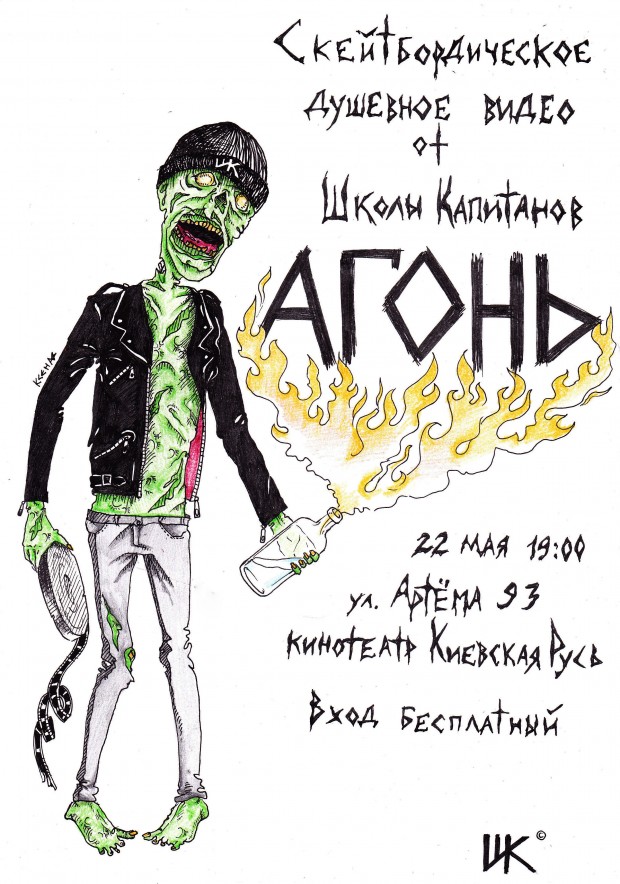 Скейтбордическое
душевное видео
от
Школы Капитанов
АГОНЬ
ШК
Ксена
22 мая 19:00
ул. Артёма 93
кинотеатр Киевская Русь
Вход бесплатный
ШК ©